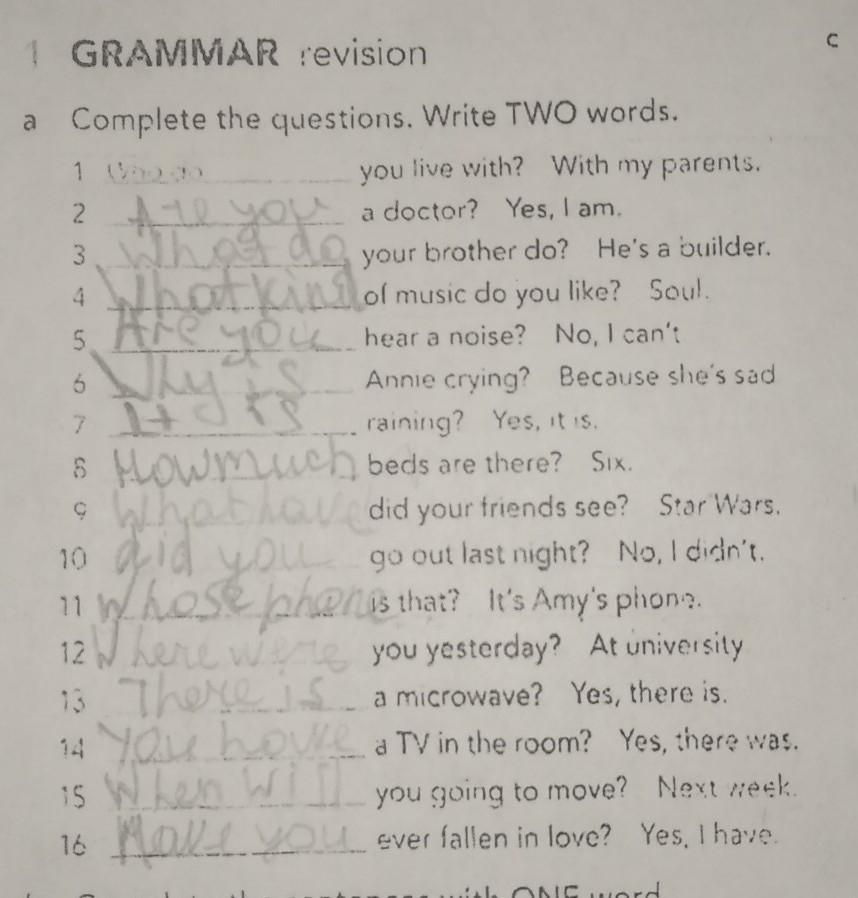 1 GRAMMAR revision
c
a Complete the questions. Write TWO words.
1 Who do you live with? With my parents.
2 Are you a doctor? Yes, I am.
3 What do your brother do? He's a builder.
4 What kind of music do you like? Soul.
5 Are you hear a noise? No, I can't
6 Why is Annie crying? Because she's sad
7 It is raining? Yes, it is.
8 How much beds are there? Six.
9 What have did your friends see? Star Wars.
10 did you go out last night? No, I didn't.
11 Whose phone is that? It's Amy's phone.
12 Where were you yesterday? At university
13 There is a microwave? Yes, there is.
14 You have a TV in the room? Yes, there was.
15 When will you going to move? Next week.
16 Have you ever fallen in love? Yes, I have.
sentences with ONE word